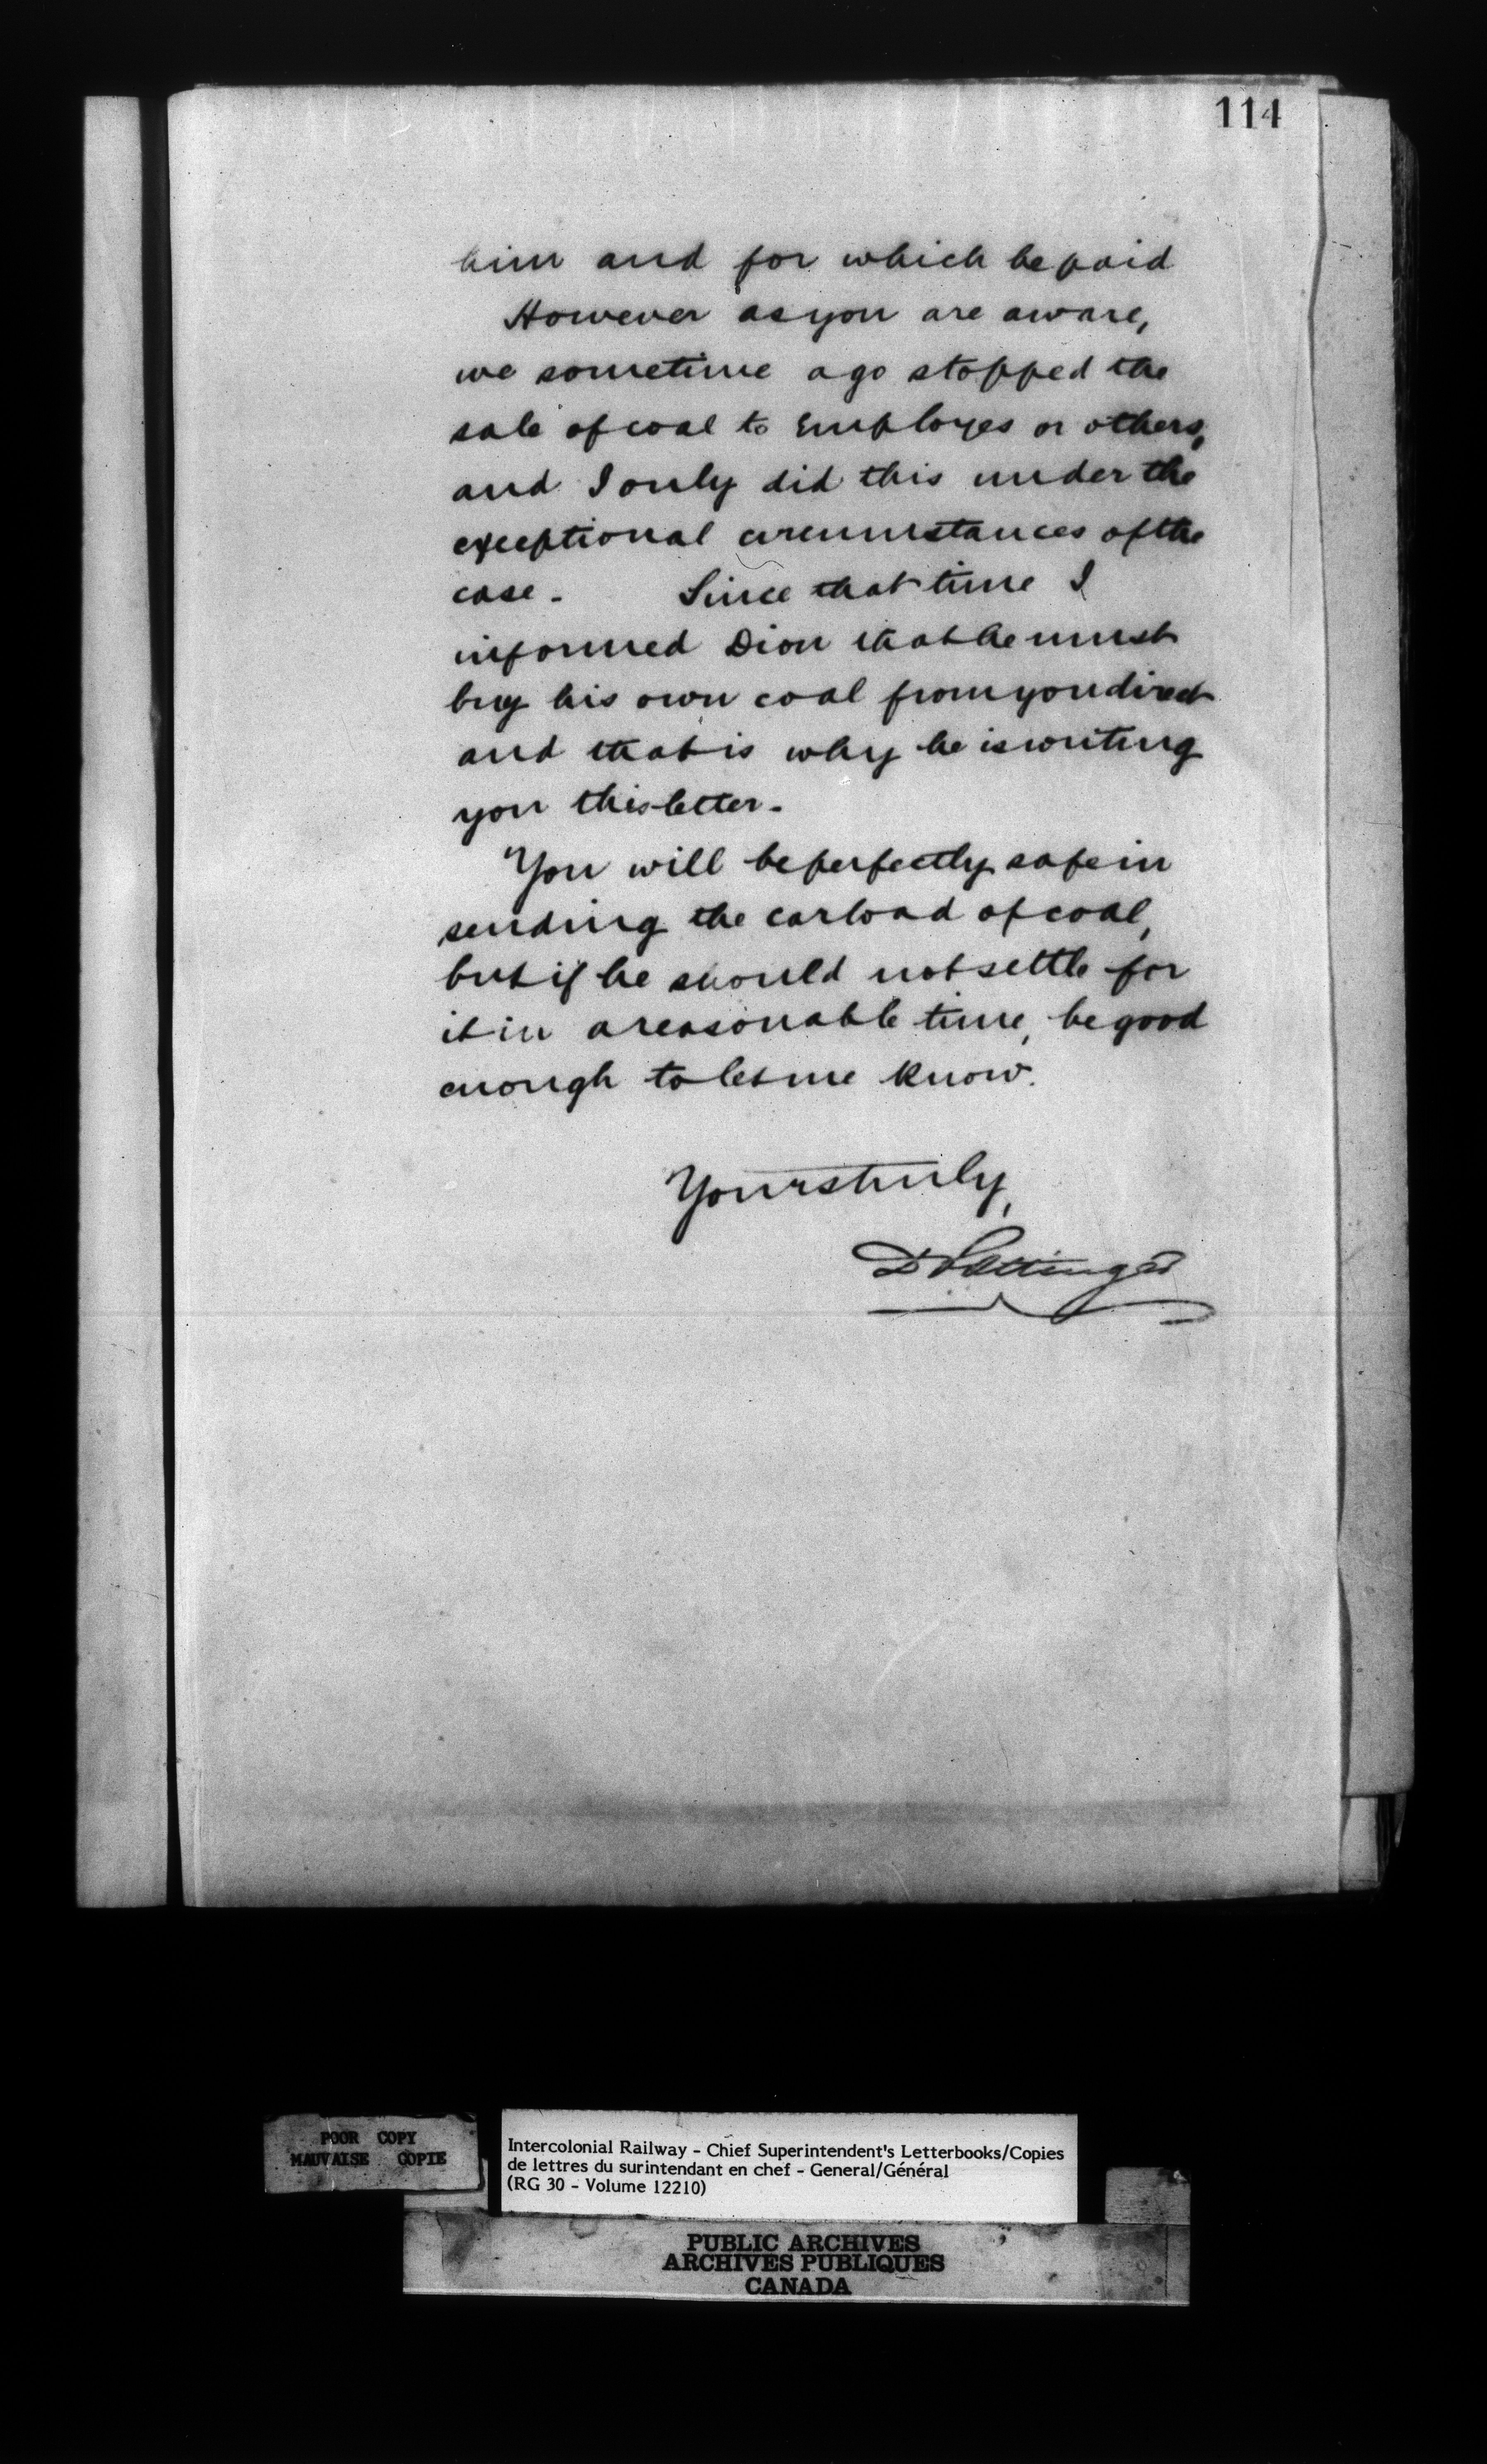 114
him and for which he paid
However as you are aware,
we sometime ago stopped the
sale of coal to Employes or others,
and I only did this under the
exceptional circumstances of the
case - Since that time I
informed Dion that he must
buy his own coal from you direct
and that is why he is writing
you this letter -
You will be perfectly safe in
sending the carload of coal,
but if he should not settle for
it in a reasonable time, be good
enough to let me know.
Yours truly,
D Pottinger
POOR COPY
MAUVAISE COPIE
Intercolonial Railway - Chief Superintendent's Letterbooks/Copies
de lettres du surintendant en chef - General/Général
(RG 30 - Volume 12210)
PUBLIC ARCHIVES
ARCHIVES PUBLIQUES
CANADA